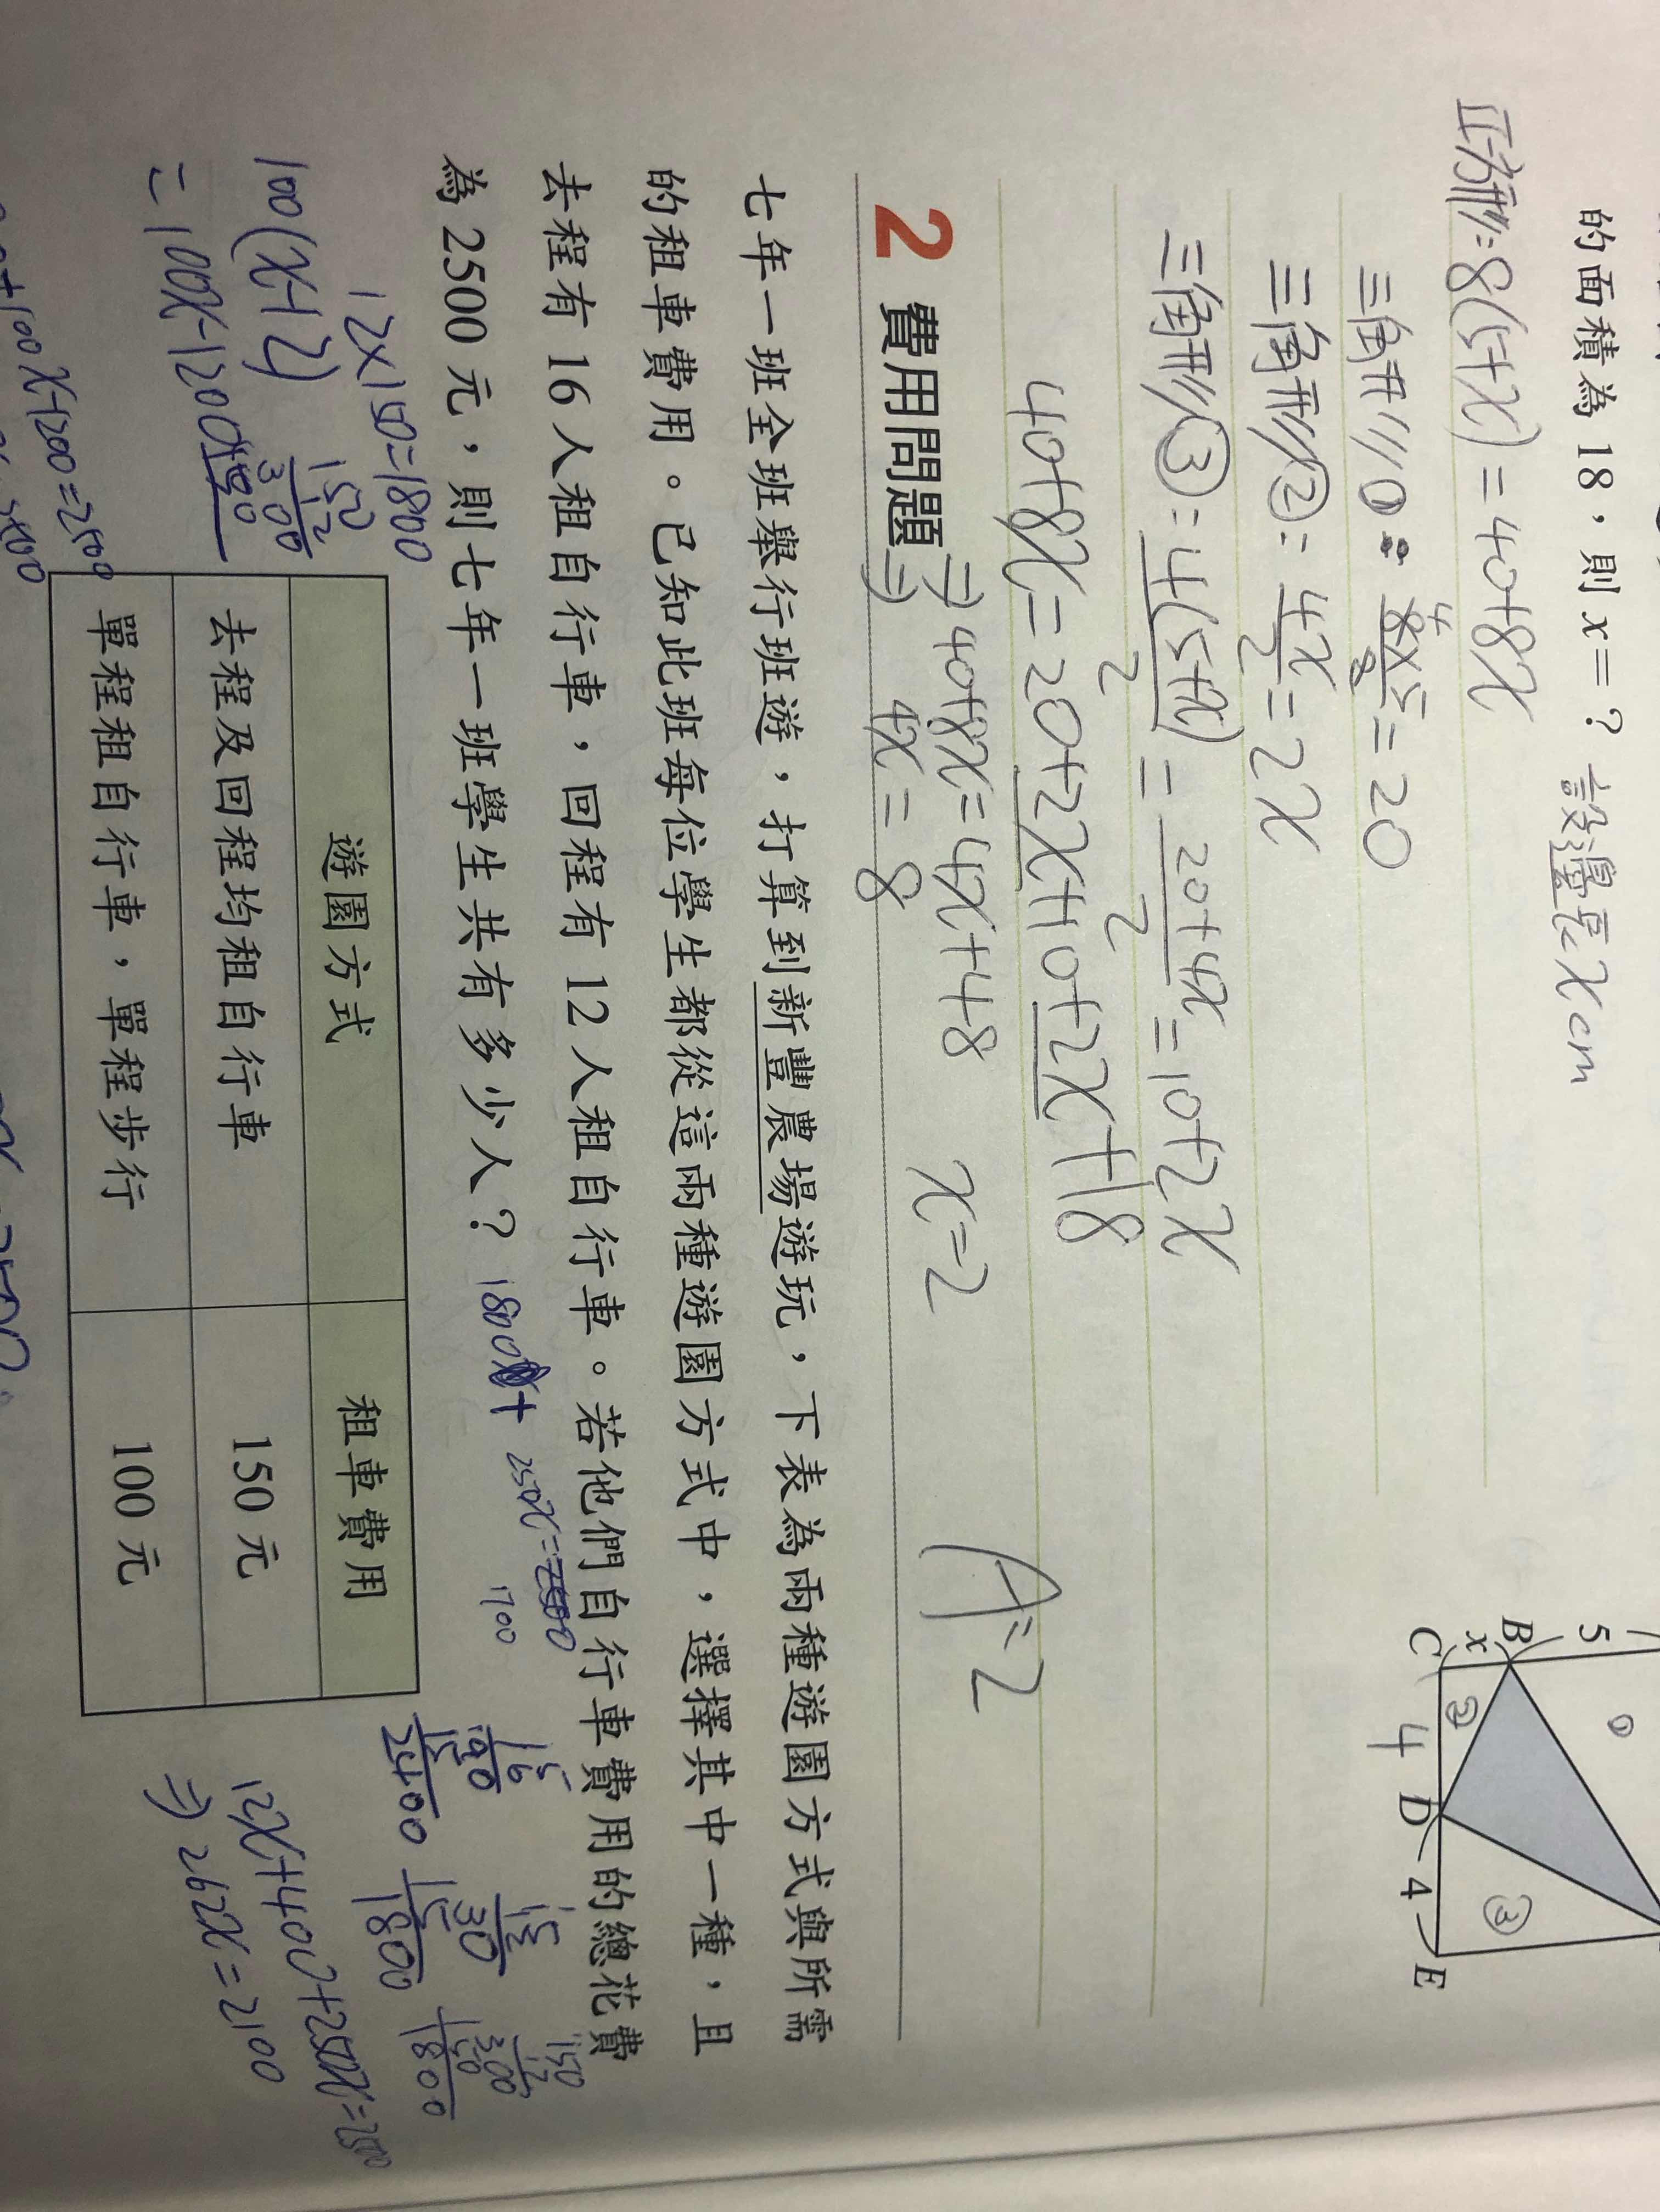 的面積為 18，則 x=？ 設邊長xcm
5
B
x
C
4
D
4
E
①
②
③
正方形:8(5+x)=40+8x
三角形①:
=20
三角形②: 4x/2=2x
三角形③: 4(5+x)/2=20+4x/2=10+2x
40+8x=20+2x+10+2x+18
⇒40+8x=4x+48
⇒ 4x=8
x=2
A:2
2 費用問題
七年一班全班舉行班遊，打算到新豐農場遊玩，下表為兩種遊園方式與所需
的租車費用。已知此班每位學生都從這兩種遊園方式中，選擇其中一種，且
去程有 16 人租自行車，回程有 12 人租自行車。若他們自行車費用的總花費
為 2500 元，則七年一班學生共有多少人？
1800
+
250x=
1700
遊園方式 租車費用
去程及回程均租自行車 150 元
單程租自行車，單程步行 100 元
12x150=1800
100(x-12)
=100x-1200
150
12
300
2400
1800
150
12
300
150
1800
12x+400+250x=2500
⇒262x=2100
+100x-1200=2500